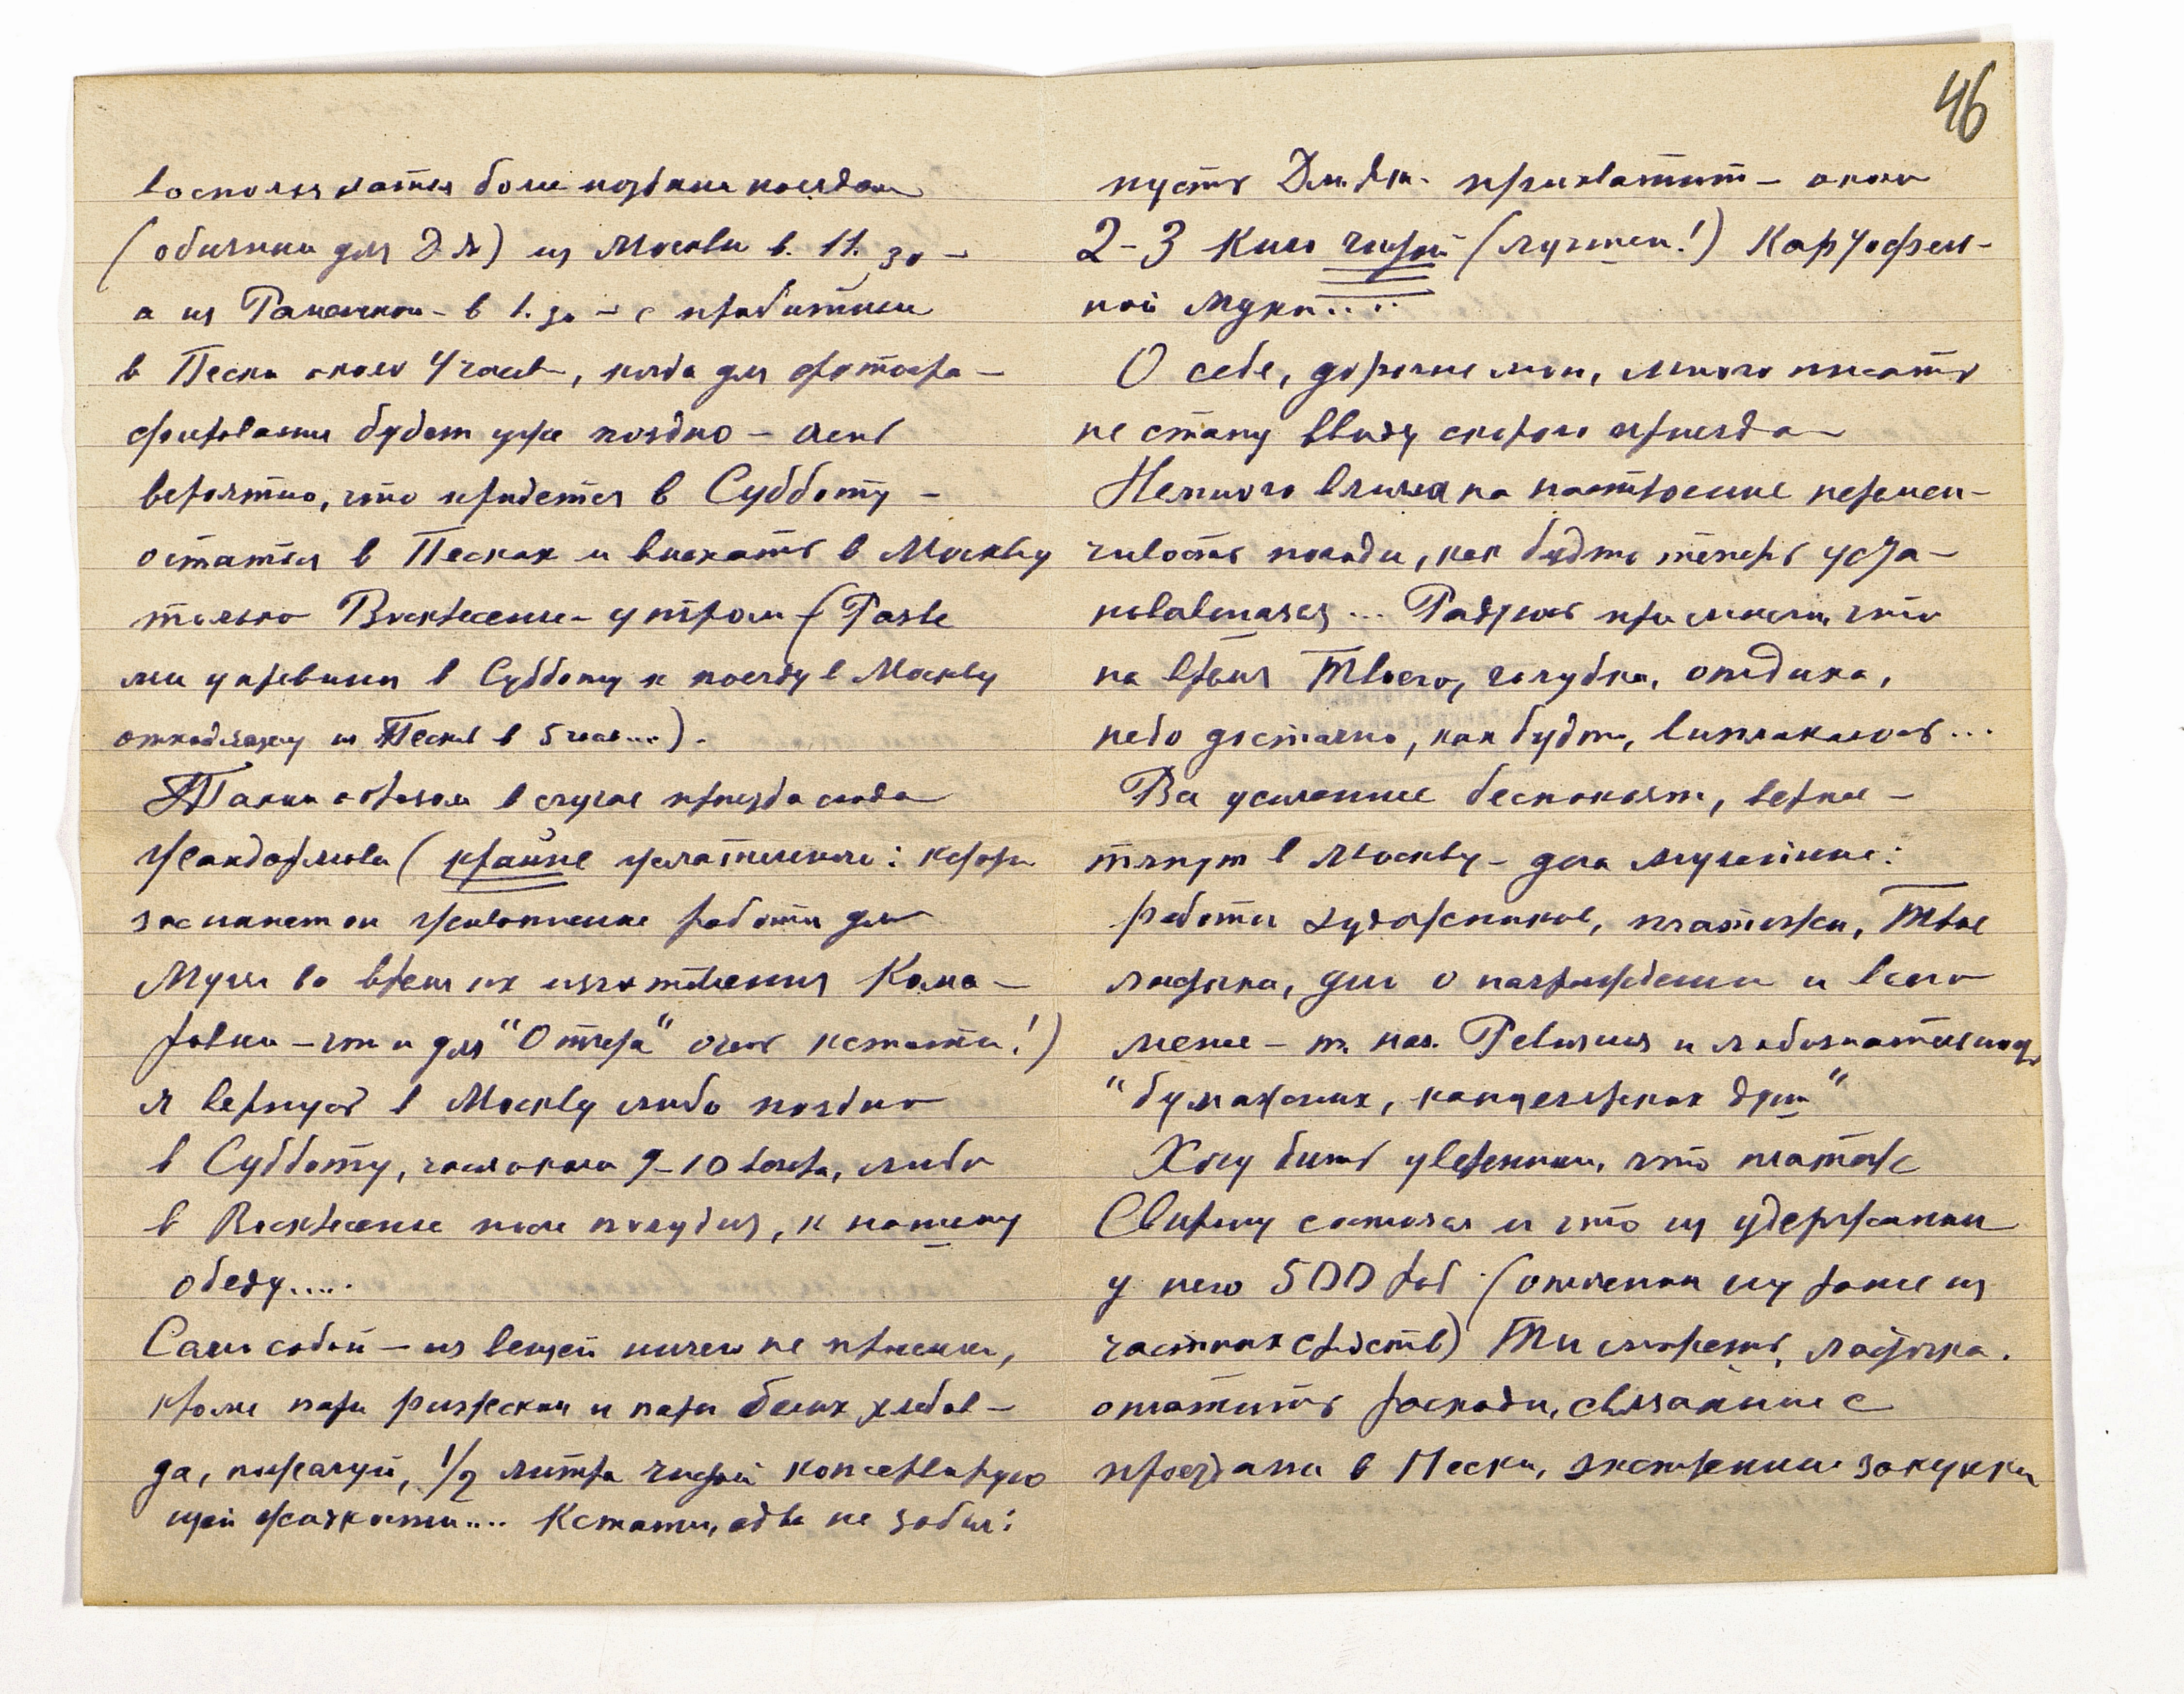 46
воспользоваться более поздним поездом
(обычным для Д. Я.) из Москвы в 11. 30 –
а из Раменском – в 1. 30 – с прибытием
в Пески около 4 часов, когда для фотогра-
фирования будет уже поздно – очень
вероятно, что придется в Субботу –
остаться в Песках и выехать в Москву
только Воскресенье – утром – (Разве
мы управимся в Субботу к поезду в Москву
отходящему из Песков в 5 час...).
Таким образом в случае приезда сюда
Жандармова (крайне желательного:
заснимет он живописные работы для
Музея во время их изготовления Кома-
ровым – что и для "Отчета" очень кстати!)
я вернусь в Москву либо поздно
в Субботу, часам около 9-10 вечера, либо
в Воскресенье после полудня, к нашему
обеду.....
Сам собой – из вещей ничего не привози,
кроме пары и пары белых хлебов –
да, пожалуй, 1/2 литра чистой консервирую
щей жидкости.... Кстати, едва не забыл:
пусть прихватит – около
2-3 кило чистой (лучшей!) Картофель-
ной муки....
О себе, дорогие мои, много писать
не стану ввиду скорого приезда –
Немного влияла на настроение перемен-
чивость погоды, как будто теперь уста-
новившаяся... Радуюсь при мысли, что
на время Твоего, голубка, отдыха,
небо достаточно, как будто, выплакалось...
Все усиленнее беспокоят, вернее –
тянут в Москву – дела музейные:
работы художников, платежи, Твое
ладочка, дело о награждении и всего
менее – т. наз. Ревизия и любознательность
"бумажных, канцелярских душ"
Хочу быть уверенным, что платеж
Свирину состоялся и что из удержанных
у него 500 руб (оплаченных ему ранее из
частных средств) Ты сможешь, ладочка.
оплатить расходы, связанные с
проездами в Пески, экстренными закупками